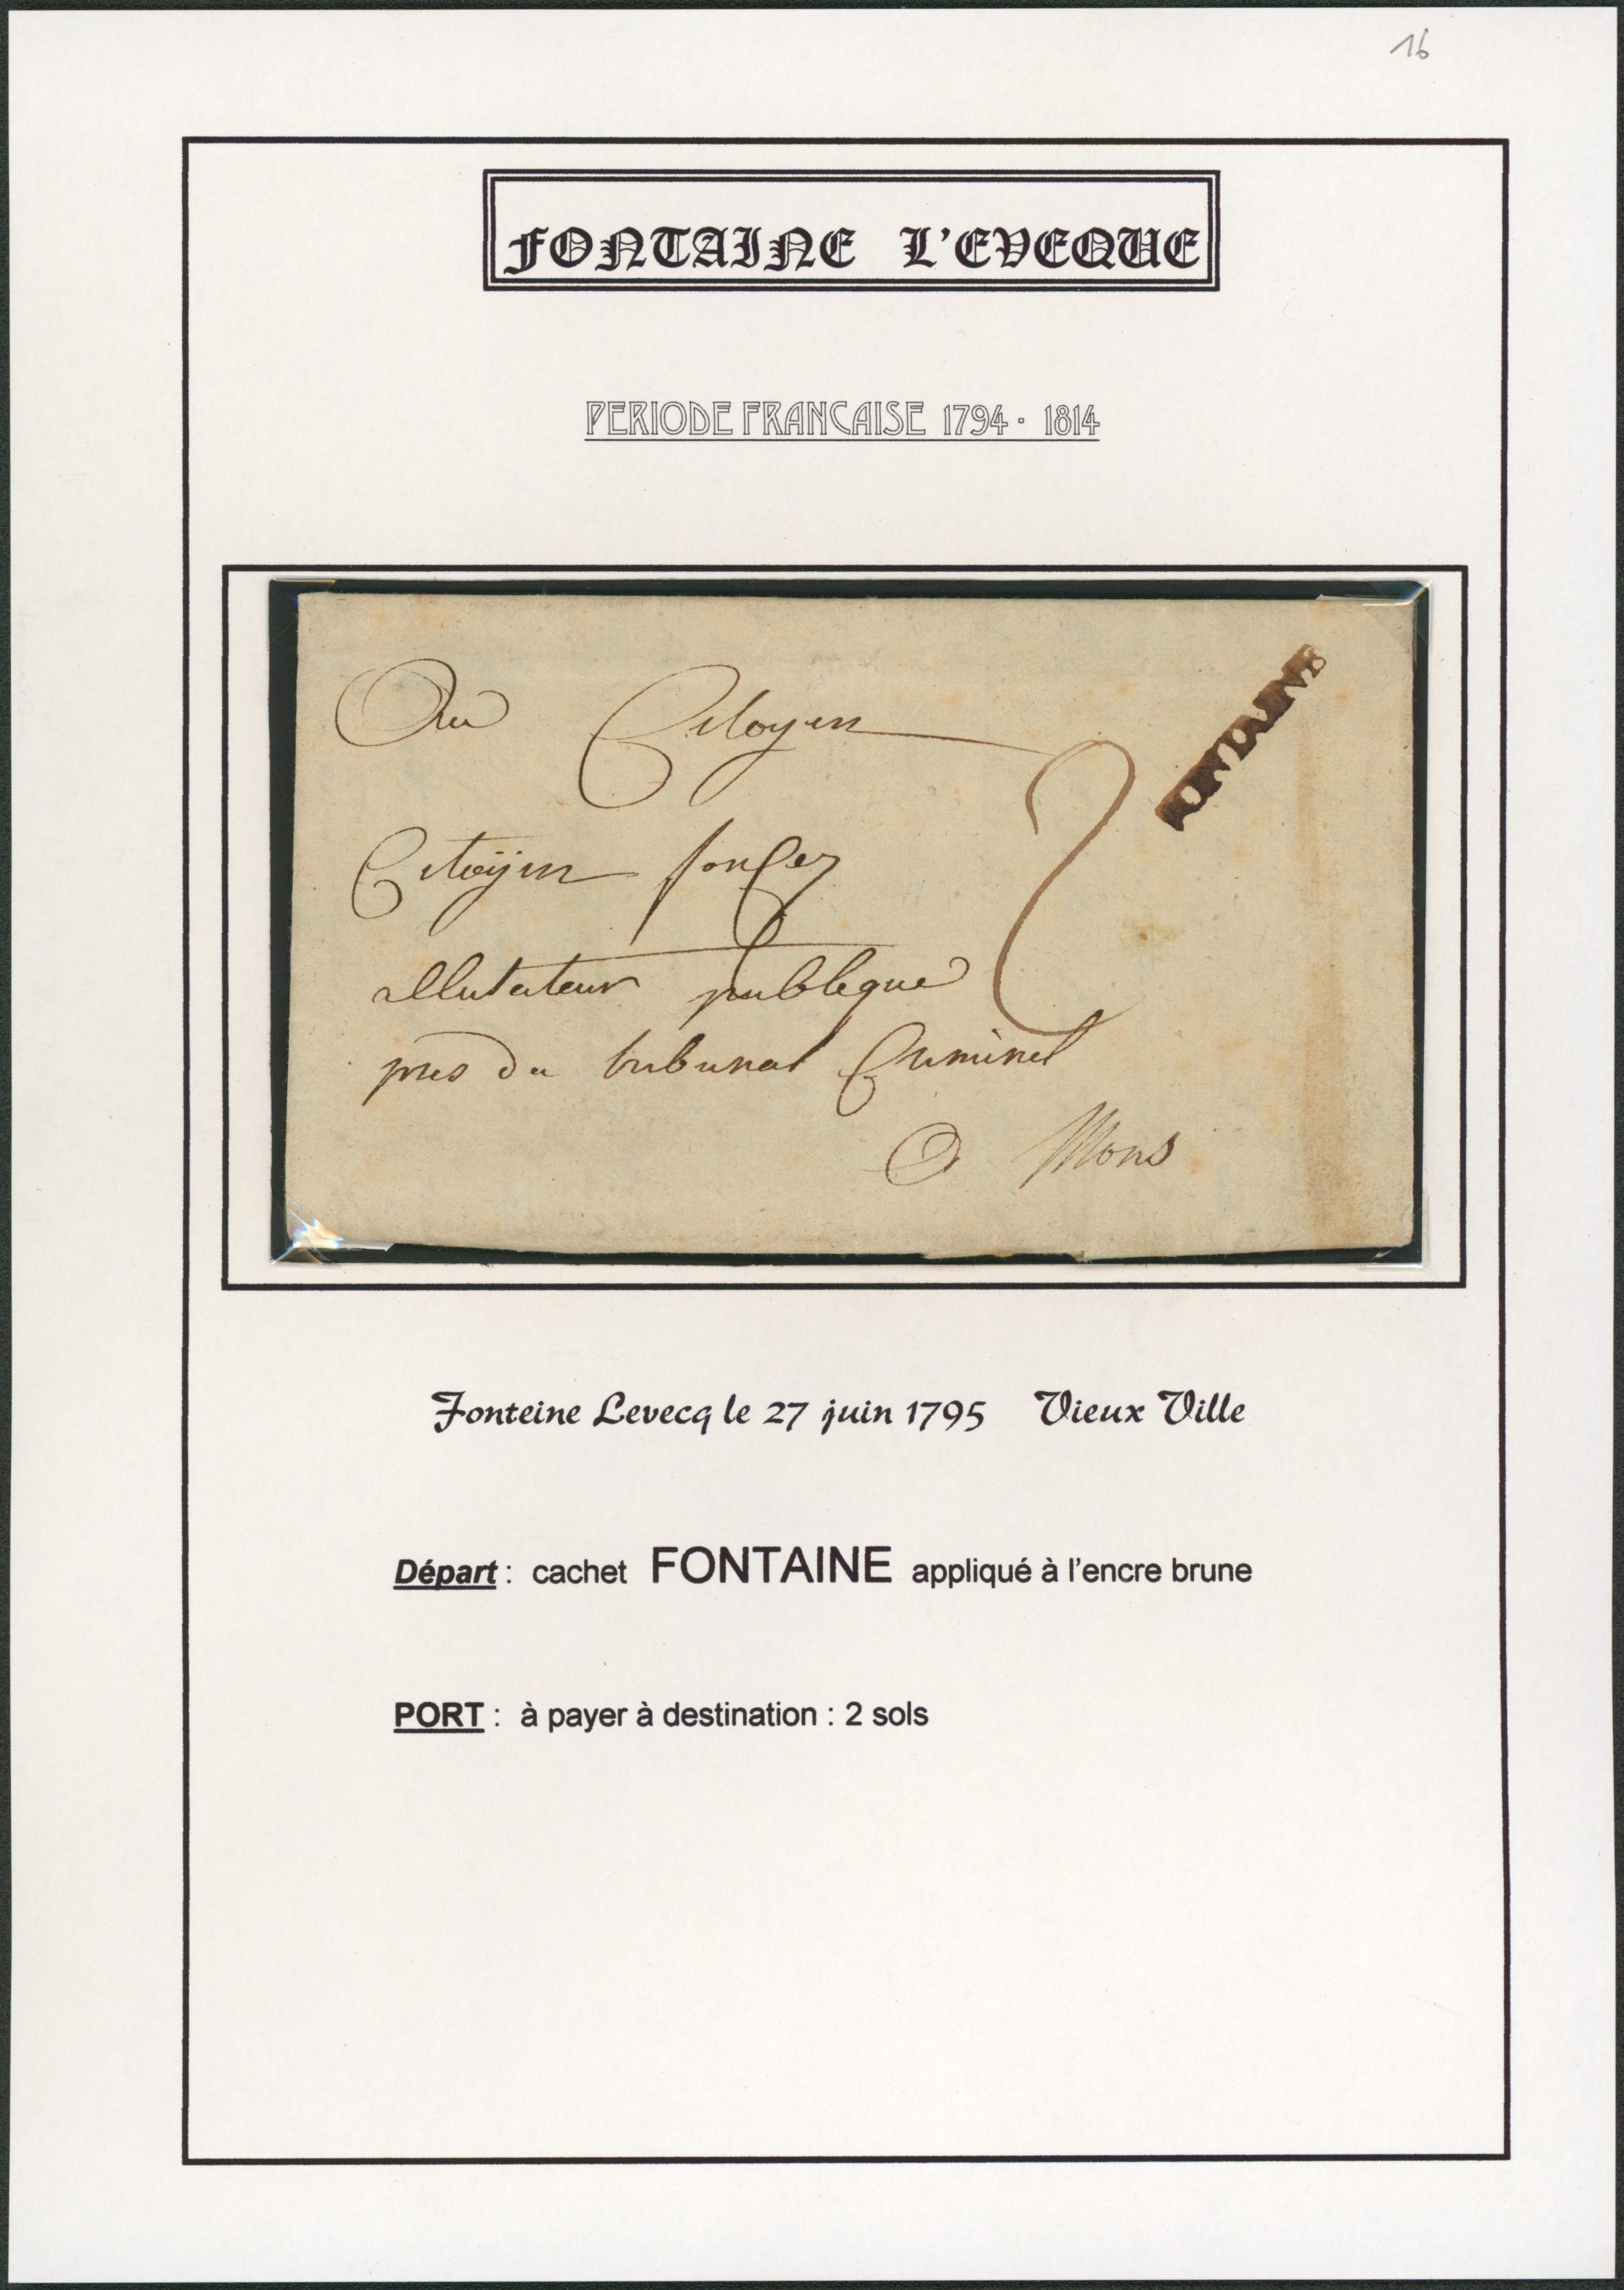 16
FONTAINE L'EVEQUE
PERIODE FRANCAISE 1794 - 1814
FONTAINE
Au Citoyen
2
Citoÿen
publeque
pres du tribunal Criminel
a Mons
Fonteine Levecq le 27 juin 1795 Vieux Ville
Départ : cachet FONTAINE appliqué à l'encre brune
PORT : à payer à destination : 2 sols